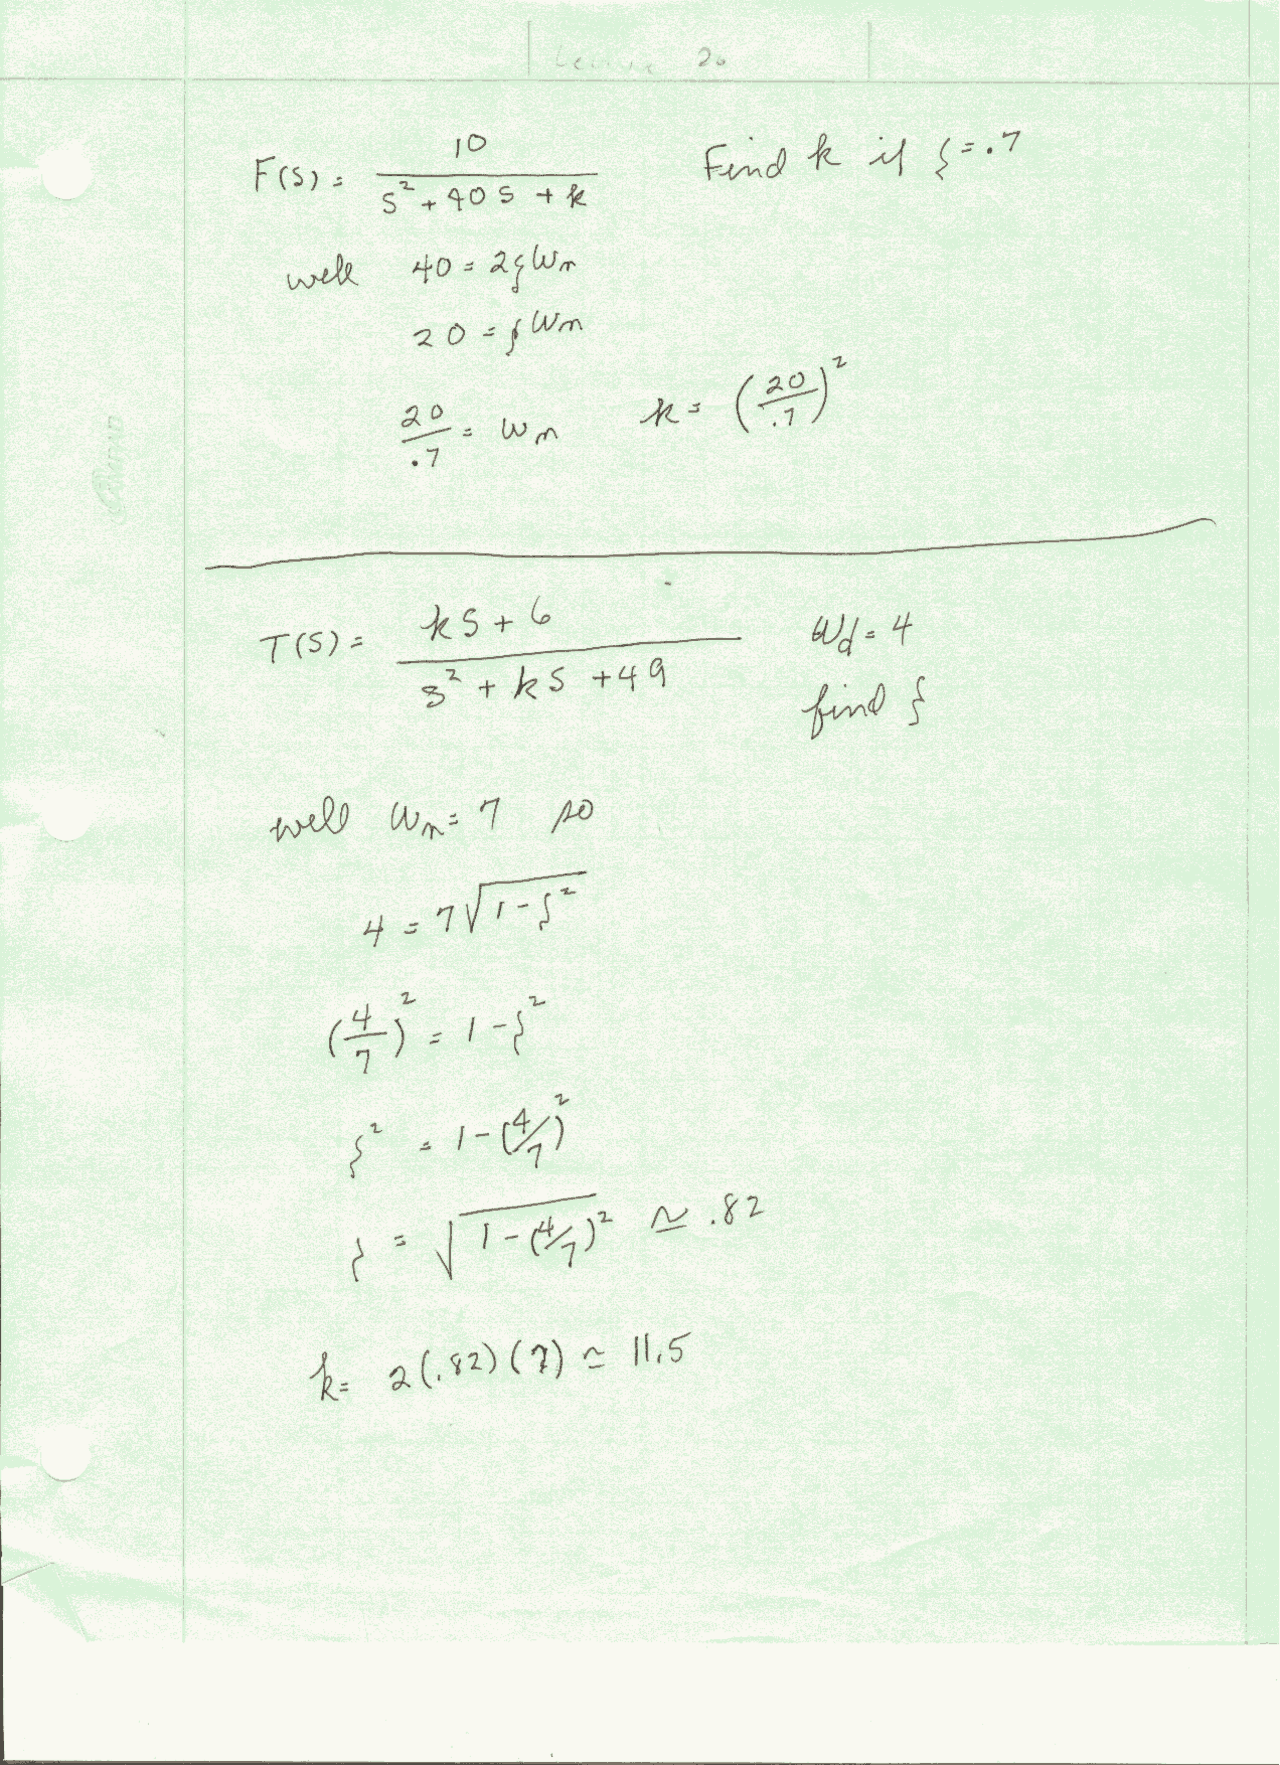 Lecture 20
F(s) = 10 / (s² + 40s + k)   Find k if ζ = .7
well 40 = 2ζWn
20 = ζWn
20/.7 = Wn   k = (20/.7)²
AMPAD
T(s) = (ks + 6) / (s² + ks + 49)   Wd = 4
find ζ
well Wn = 7 so
4 = 7√(1-ζ²)
(4/7)² = 1-ζ²
ζ² = 1-(4/7)²
ζ = √(1-(4/7)²) ≃ .82
k = 2(.82)(7) ≃ 11.5